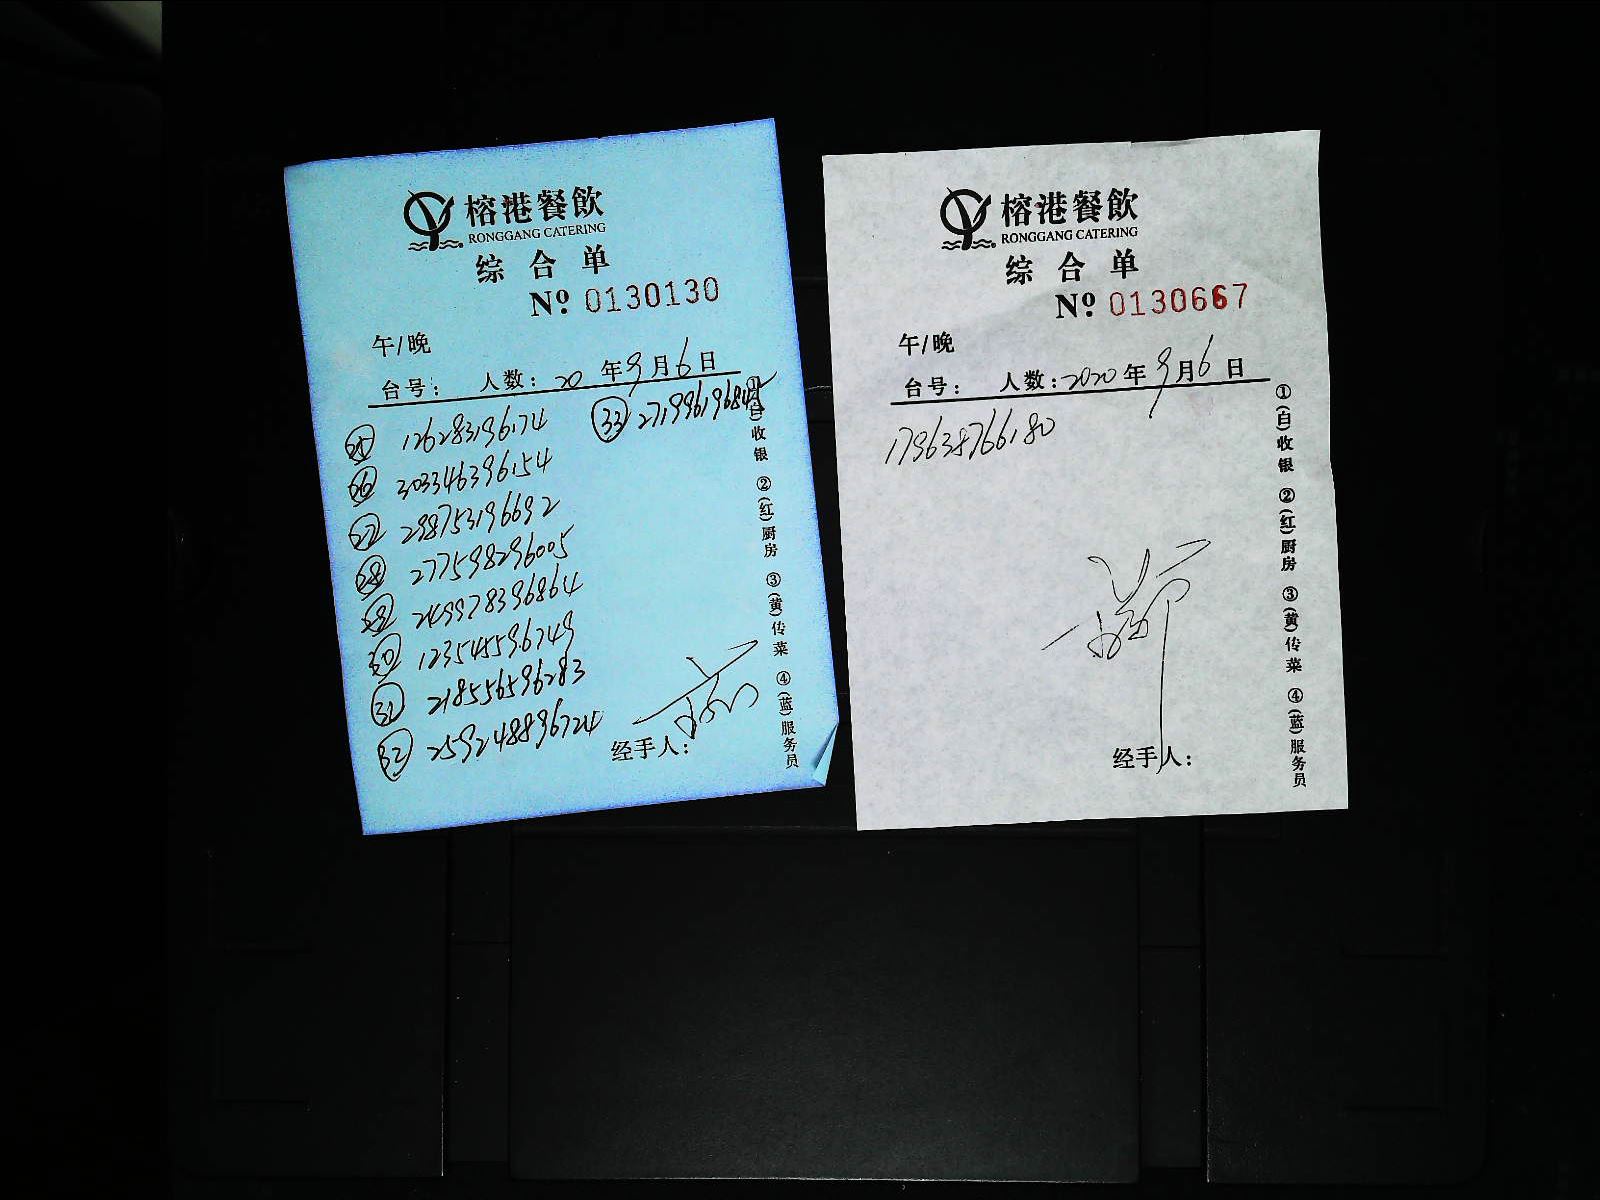 榕港餐飲
RONGGANG CATERING
综合单
Nº 0130130
午/晚
台号： 人数：20 年9月6日
㉕ 126283196174
㉖ 303346396154
㉗ 298753196692
㉘ 277598296005
㉙ 249978396864
㉚ 123545596749
㉛ 218556596283
㉜ 259248896724
㉝ 271996196842
经手人：
①(白)收银 ②(红)厨房 ③(黄)传菜 ④(蓝)服务员
榕港餐飲
RONGGANG CATERING
综合单
Nº 0130667
午/晚
台号： 人数：2020年9月6日
179638766180
经手人：
①(白)收银 ②(红)厨房 ③(黄)传菜 ④(蓝)服务员